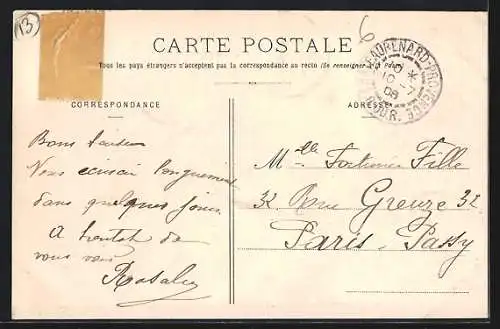 13
6
CARTE POSTALE
Tous les pays étrangers n'acceptent pas la correspondance au recto (Se renseigner à la Poste)
CORRESPONDANCE
ADRESSE
RENARD-PROVENCE
08
Bons baisers
Vous écrirai longuement
dans quelques jours.
A bientôt de
vous voir
Rosalie
Mlle Fortunée Fille
32 Rue Greuze 32
Paris-Passy